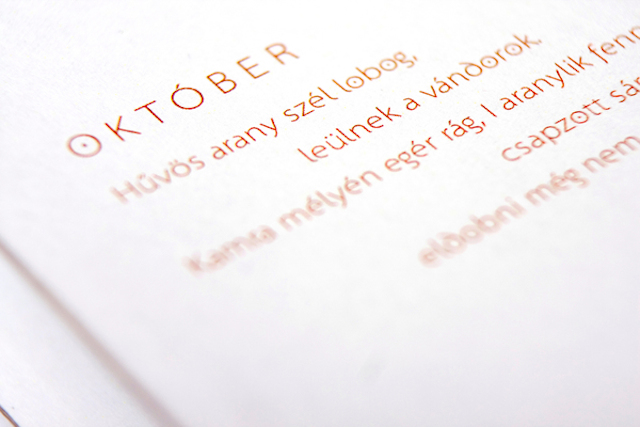 OKTÓBER
Hűvös arany szél lobog,
leülnek a vándorok.
Kamra mélyén egér rág, l aranylik fenn
csapzott sár
eldobni még nem